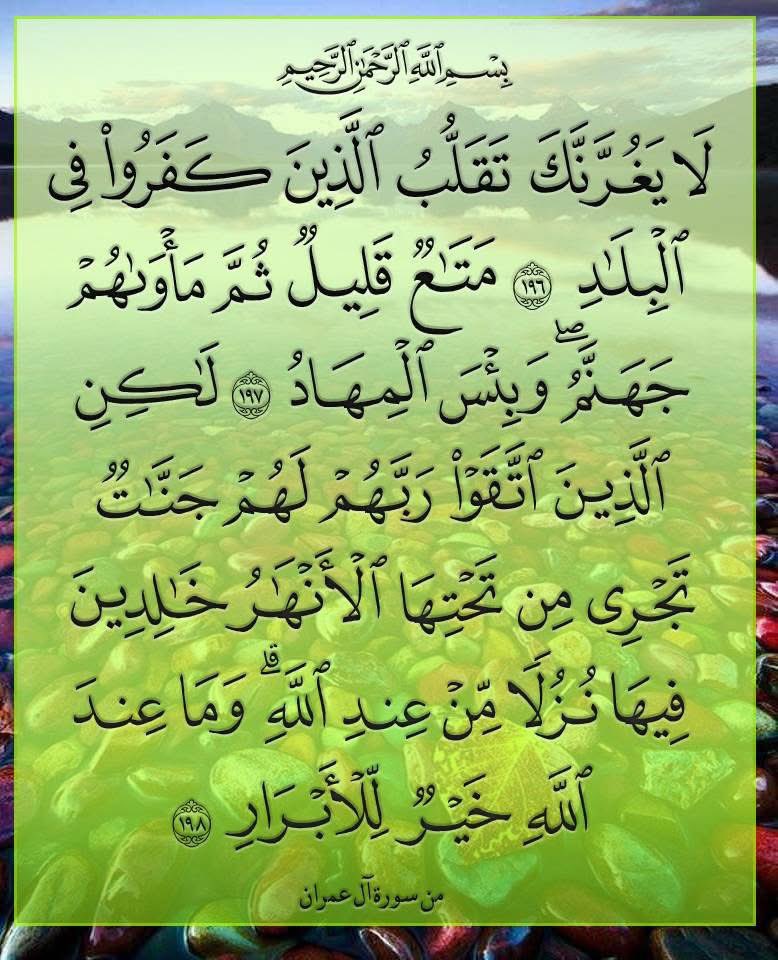 بِسْمِ ٱللَّهِ ٱلرَّحْمَٰنِ ٱلرَّحِيمِ
لَا يَغُرَّنَّكَ تَقَلُّبُ ٱلَّذِينَ كَفَرُوا۟ فِى
ٱلْبِلَٰدِ ١٩٦ مَتَٰعٌ قَلِيلٌ ثُمَّ مَأْوَىٰهُمْ
جَهَنَّمُ ۖ وَبِئْسَ ٱلْمِهَادُ ١٩٧ لَٰكِنِ
ٱلَّذِينَ ٱتَّقَوْا۟ رَبَّهُمْ لَهُمْ جَنَّٰتٌ
تَجْرِى مِن تَحْتِهَا ٱلْأَنْهَٰرُ خَٰلِدِينَ
فِيهَا نُزُلًا مِّنْ عِندِ ٱللَّهِ ۗ وَمَا عِندَ
ٱللَّهِ خَيْرٌ لِّلْأَبْرَارِ ١٩٨
من سورة آل عمران